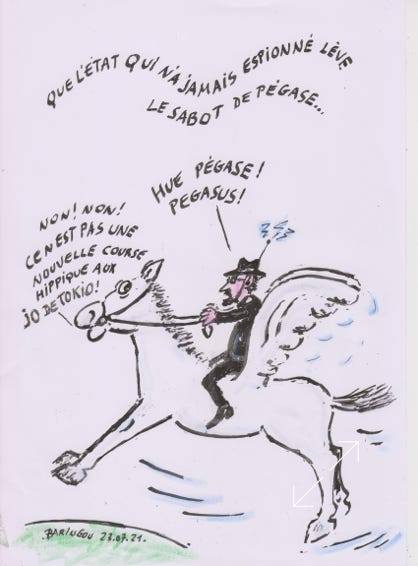 QUE L'ÉTAT QUI N'A JAMAIS ESPIONNÉ LÈVE
LE SABOT DE PÉGASE...
HUE PÉGASE!
PEGASUS!
NON! NON!
CE N'EST PAS UNE
NOUVELLE COURSE
HIPPIQUE AUX
JO DE TOKIO!
BARINGOU 23.07.21.